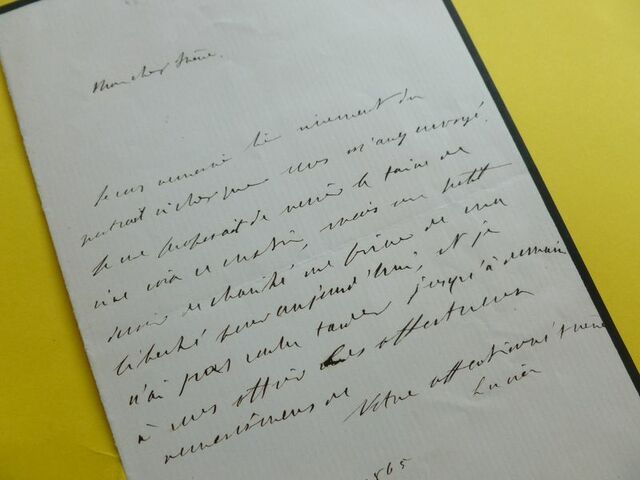 Mon cher frère.
Je vous remercie bien vivement du
portrait si cher que vous m'avez envoyé.
Je me proposais de venir le faire de
vive voix ce matin, mais un petit
devoir de charité me prive de ma
liberté pour aujourd'hui, et je
n'ai pas voulu tarder jusqu'à demain
à vous offrir mes affectueux
remerciemens
Votre affectionné frère
Lucien
1865